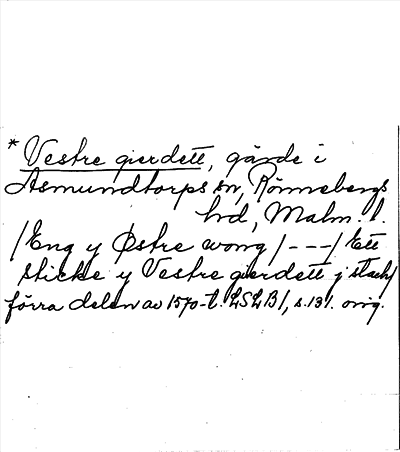 * Vestre gierdett, gärde i
Asmundtorps sn, Rönnebergs
hd, Malm. l.
/Eng y Østre wong/---/Ett
sticke y Vestre gierdett j stach/
förra delen av 1570-t. LSLB/, s. 131. orig.